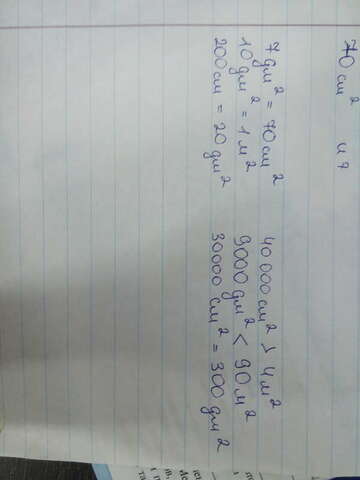 70 см² и 7
7 дм² = 70 см²
10 дм² = 1 м²
200 см = 20 дм²
40 000 см² > 4 м²
9000 дм² < 90 м²
30000 см² = 300 дм²